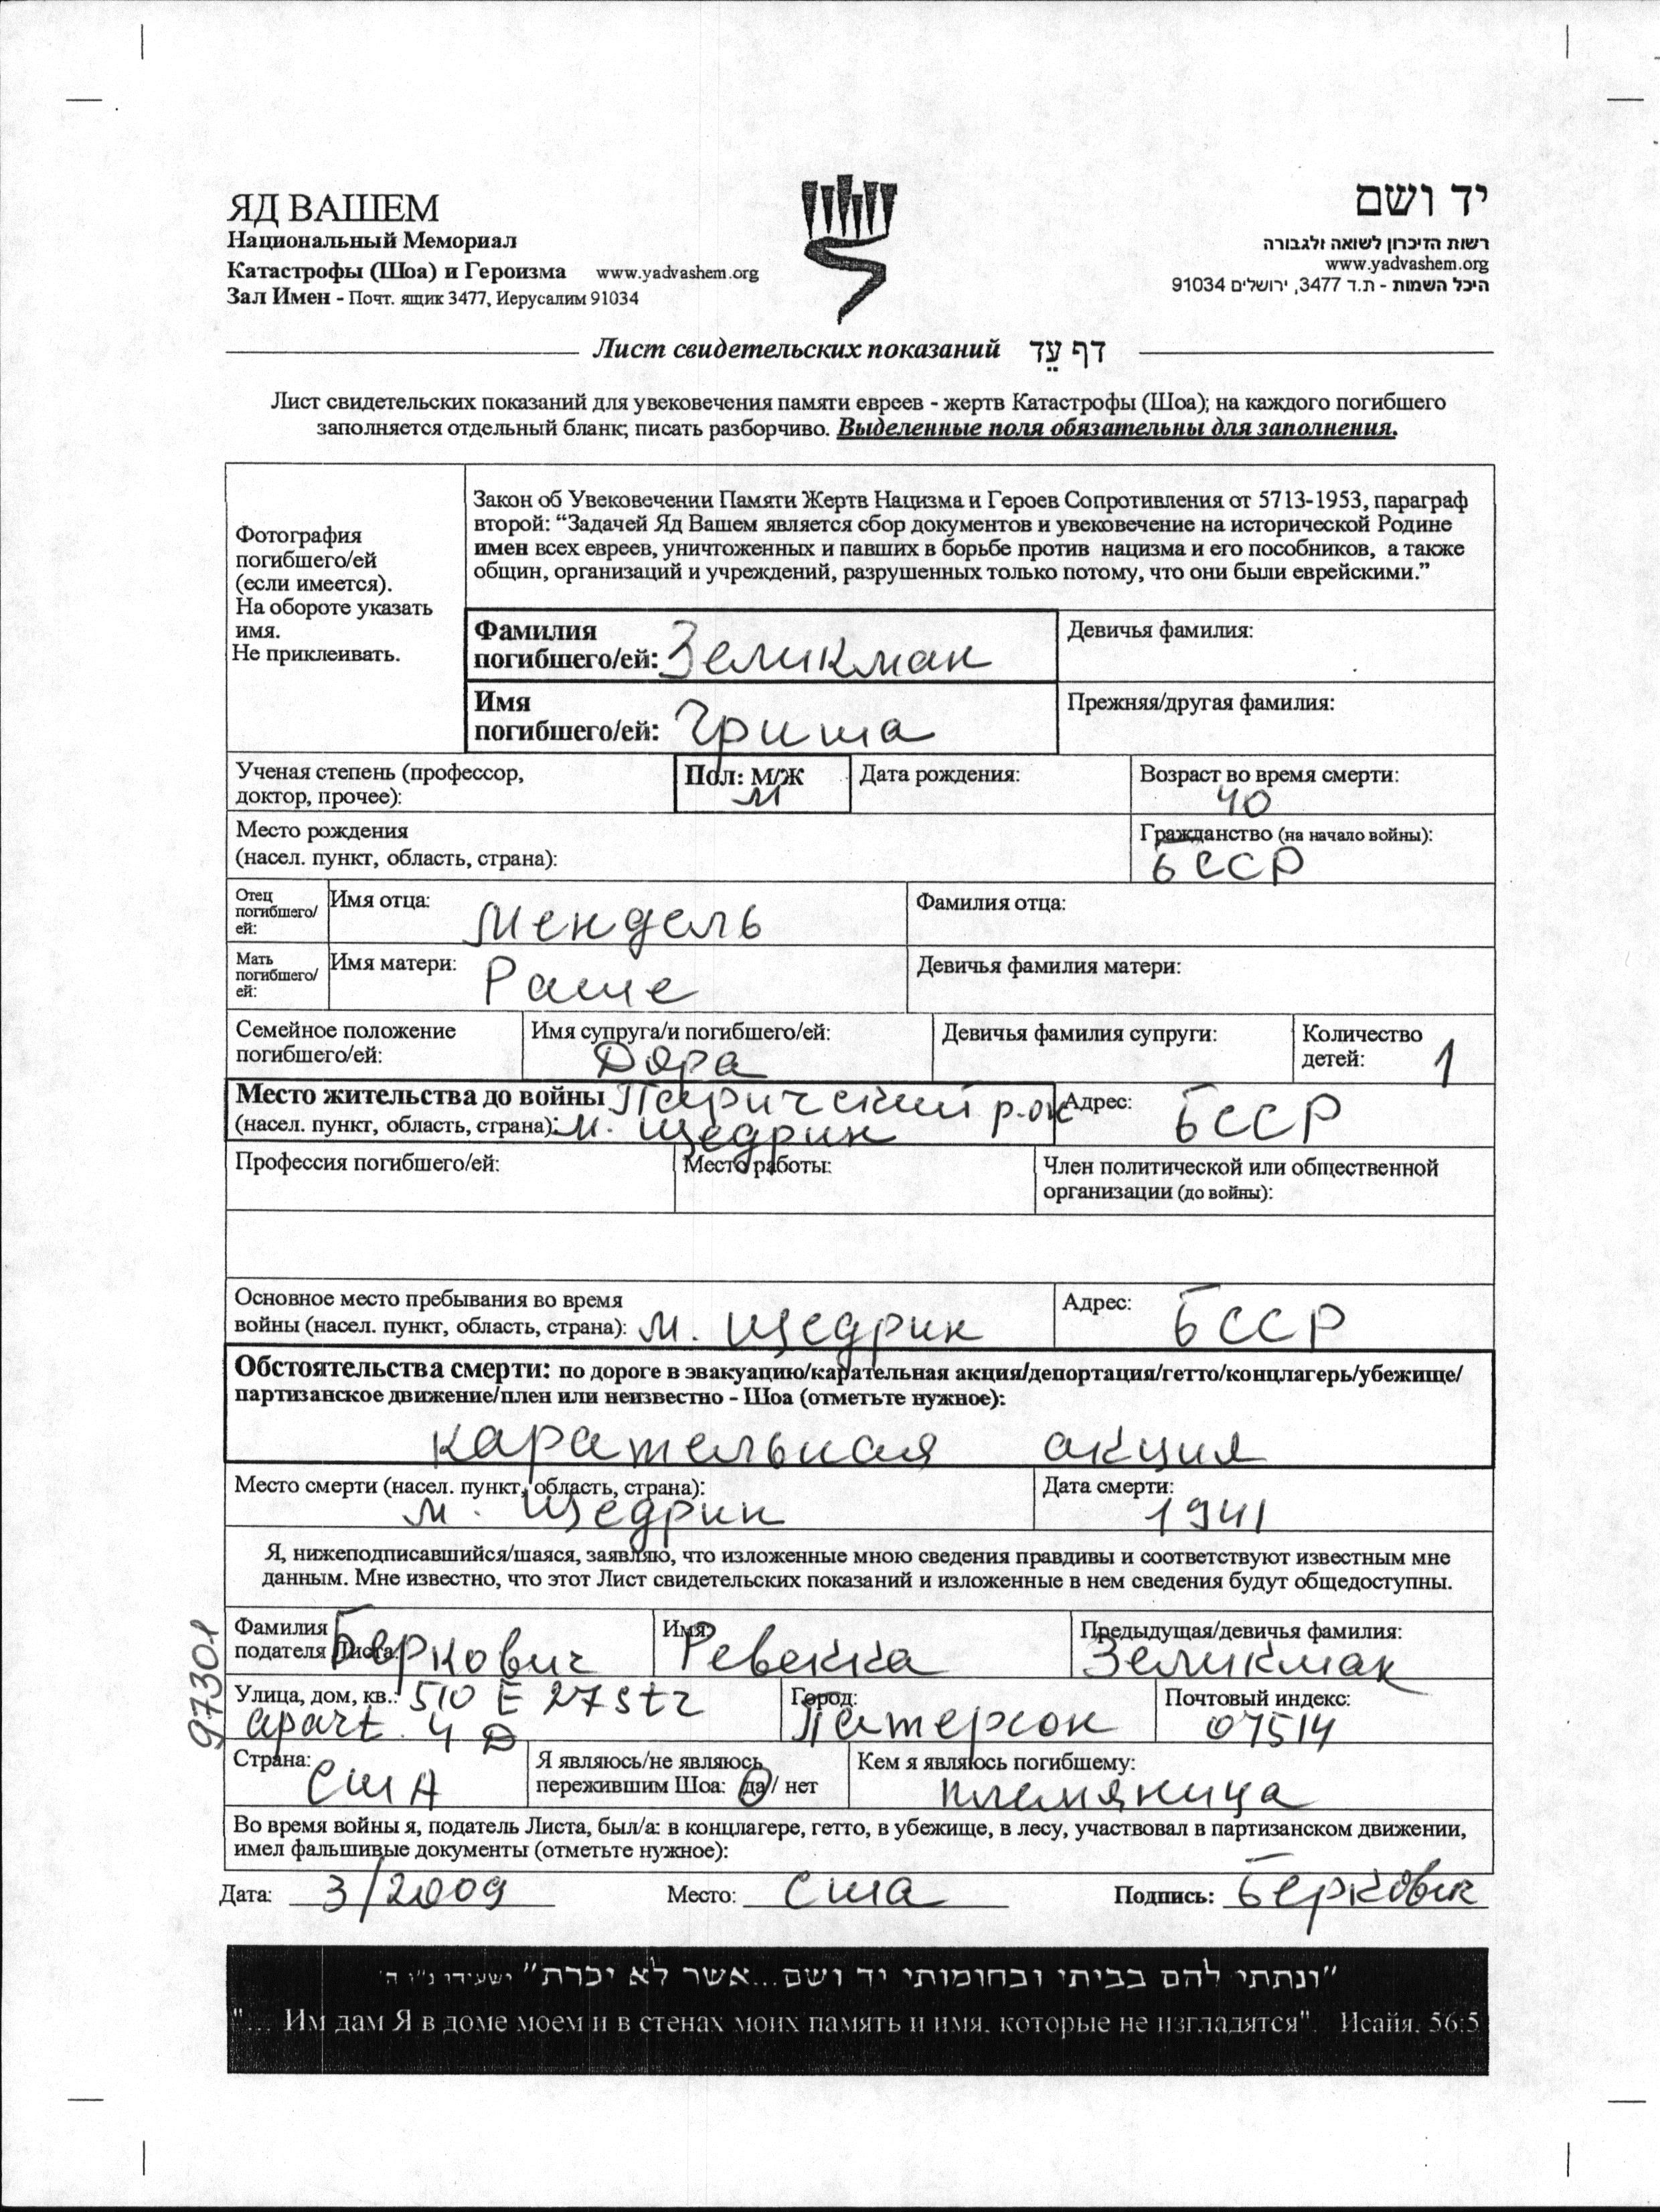 ЯД ВАШЕМ
Национальный Мемориал
Катастрофы (Шоа) и Героизма www.yadvashem.org
Зал Имен - Почт. ящик 3477, Иерусалим 91034
יד ושם
רשות הזיכרון לשואה ולגבורה
www.yadvashem.org
היכל השמות - ת.ד 3477, ירושלים 91034
Лист свидетельских показаний דף עֵד
Лист свидетельских показаний для увековечения памяти евреев - жертв Катастрофы (Шоа); на каждого погибшего
заполняется отдельный бланк; писать разборчиво. Выделенные поля обязательны для заполнения.
Фотография
погибшего/ей
(если имеется).
На обороте указать
имя.
Не приклеивать.
Закон об Увековечении Памяти Жертв Нацизма и Героев Сопротивления от 5713-1953, параграф
второй: “Задачей Яд Вашем является сбор документов и увековечение на исторической Родине
имен всех евреев, уничтоженных и павших в борьбе против нацизма и его пособников, а также
общин, организаций и учреждений, разрушенных только потому, что они были еврейскими.”
Фамилия
погибшего/ей: Зеликман
Девичья фамилия:
Имя
погибшего/ей: Гриша
Прежняя/другая фамилия:
Ученая степень (профессор,
доктор, прочее):
Пол: М/Ж
М
Дата рождения:
Возраст во время смерти:
40
Место рождения
(насел. пункт, область, страна):
Гражданство (на начало войны):
БССР
Отец
погибшего/
ей:
Имя отца: Мендель
Фамилия отца:
Мать
погибшего/
ей:
Имя матери: Раше
Девичья фамилия матери:
Семейное положение
погибшего/ей:
Имя супруга/и погибшего/ей:
Дора
Девичья фамилия супруги:
Количество
детей: 1
Место жительства до войны Паричский р-он
(насел. пункт, область, страна): м. Щедрин
Адрес: БССР
Профессия погибшего/ей:
Место работы:
Член политической или общественной
организации (до войны):
Основное место пребывания во время
войны (насел. пункт, область, страна): м. Щедрин
Адрес: БССР
Обстоятельства смерти: по дороге в эвакуацию/карательная акция/депортация/гетто/концлагерь/убежище/
партизанское движение/плен или неизвестно - Шоа (отметьте нужное):
карательная акция
Место смерти (насел. пункт, область, страна):
м. Щедрин
Дата смерти:
1941
Я, нижеподписавшийся/шаяся, заявляю, что изложенные мною сведения правдивы и соответствуют известным мне
данным. Мне известно, что этот Лист свидетельских показаний и изложенные в нем сведения будут общедоступны.
97301
Фамилия
подателя Листа: Беркович
Имя: Ревекка
Предыдущая/девичья фамилия:
Зеликман
Улица, дом, кв.: 510 E 27 str
apart. 4 D
Город:
Патерсон
Почтовый индекс:
07514
Страна:
США
Я являюсь/не являюсь
пережившим Шоа: да / нет
Кем я являюсь погибшему:
племяница
Во время войны я, податель Листа, был/а: в концлагере, гетто, в убежище, в лесу, участвовал в партизанском движении,
имел фальшивые документы (отметьте нужное):
Дата: 3/2009 Место: сша Подпись: Беркович
"ונתתי להם בביתי ובחומותי יד ושם...אשר לא יכרת" ישעיהו נ"ו ה'
"... Им дам Я в доме моем и в стенах моих память и имя, которые не изгладятся". Исайя, 56:5